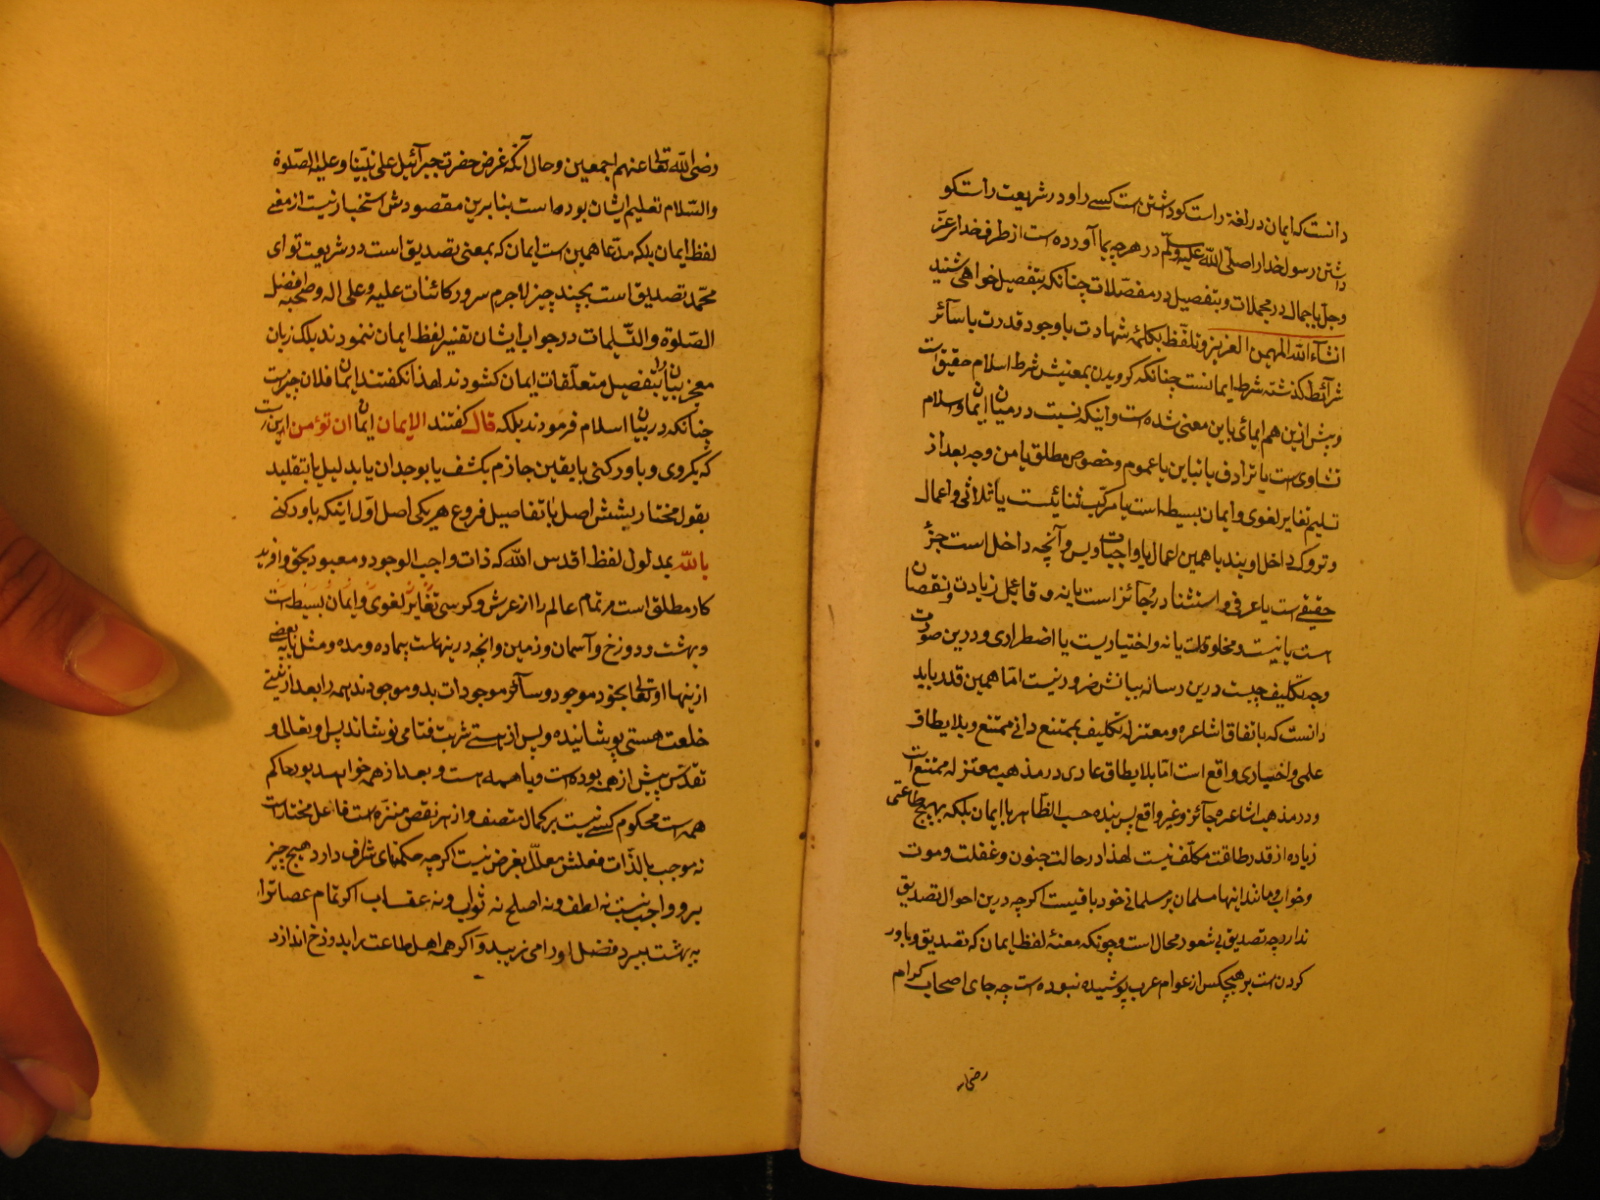 دانست که ایمان در لغة راست کو داشتن است کسے را و در شریعت راستکو
داشتن رسول خدا را صلی الله علیه وسلم در هرچه بما آورده است از طرف خدا عز
وجل باجمال در مجملات و بتفصیل در مفصلات چنانکه بتفصیل خواهی شنید
انشآء الله المهیمن العزیز و تلفظ بکلمهٔ شهادت با وجود قدرت با سآئر
شرآئط کذشته شرط ایمانست چنانکه کرویدن بمعنیش شرط اسلام حقیقی است
وپیش ازین هم ایمائی باین معنی شده است و اینکه نسبت در میان ایمان و اسلام
تساوی است یا ترادف یا تباین یا عموم و خصوص مطلق یا من وجه بعد از
تسلیم تغایر لغوی و ایمان بسیط است یا مرکب ثنائیست یا ثلاثی و اعمال
و تروک داخل اویند یا همین اعمال یا واجبات و بس و آنچه داخل است جزؤ
حقیقے است یا عرفی و استثنا در و جآئز است یا نه و قابل زیادت و نقصان
است یا نیست و مخلوق است یا نه و اختیاریست یا اضطراری و درین صورت
وجه تکلیف چیست درین رساله بیانش ضرور نیست اما همین قدر باید
دانست که باتفاق اشاعره و معتزله تکلیف بممتنع ذاتی ممتنع و بلا یطاق
علمی و اختیاری واقع است اما بلا یطاق عادی در مذهب معتزله ممتنع است
و در مذهب اشاعره جآئز و غیر واقع پس بنده حسب الظاهر با ایمان بلکه بهیچ طاعتی
زیاده از قدر طاقت مکلف نیست لهذا در حالت جنون و غفلت و موت
و خواب و مانند اینها مسلمان بر مسلمانی خود باقیست اکرچه درین احوال تصدیق
ندارد چه تصدیق بی شعور محال است و چونکه معنئ لفظ ایمان که تصدیق و باور
کردن است بر هیچکس از عوام عرب پوشیده نبوده است چه جای اصحاب کرام
رضی الله تعالی عنهم اجمعین و حال آنکه غرض حضرت جبرآئیل علی نبینا و علیه الصلوة
والسلام تعلیم ایشان بوده است بنا برین مقصودش استخبار نیست از معنے
لفظ ایمان بلکه مدعا همین است ایمان که بمعنی تصدیق است در شریعت تو ای
محمد تصدیق است بچند چیز لاجرم سرور کائنات علیه و علی اله و صحبه افضل
الصلوة والتسلیمات در جواب ایشان تفسیر لفظ ایمان ننمودند بلکه زبان
معجز بیان را بتفصیل متعلقات ایمان کشودند لهذا نکفتند ایمان فلان چیز است
چنانکه در بیان اسلام فرمودند بلکه قال کفتند الإیمان ایمان ان تؤمن این است
که بکروی و باور کنی بایقین جازم بکشف یا بوجدان یا بدلیل یا بتقلید
بقول مختار بشش اصل با تفاصیل فروع هر یکی اصل اول اینکه باور کنے
بالله بمدلول لفظ اقدس الله که ذات واجب الوجود و معبود بحق و آفرید
کار مطلق است مر تمام عالم را از عرش و کرسی تغایر لغوی و ایمان بسیط است
و بهشت و دوزخ و آسمان و زمین و آنچه در ینهاست بیماده و مده و مثل یا بعضے
ازینها او تعالی بخود موجود و سآئر موجودات بدو موجودند همه را بعد از نیستی
خلعت هستی پوشانیده و پس از هستے شربت فنا می نوشاند پس او تعالی و
تقدس پیش از همه بوده است و با همه است و بعد از همه خواهد بود حاکم
همه است محکوم کسے نیست بر کمال متصف و از هر نقص منزه است فاعل مختار است
نه موجب بالذات فعلش معلل بغرض نیست اکرچه حکمتهای شکرف دارد هیچ چیز
برو واجب نیست نه لطف و نه اصلح نه ثواب و نه عقاب اکر تمام عصاة را
به بهشت ببرد فضل او را می زیبد و اکر همه اهل طاعت را بدوزخ اندازد